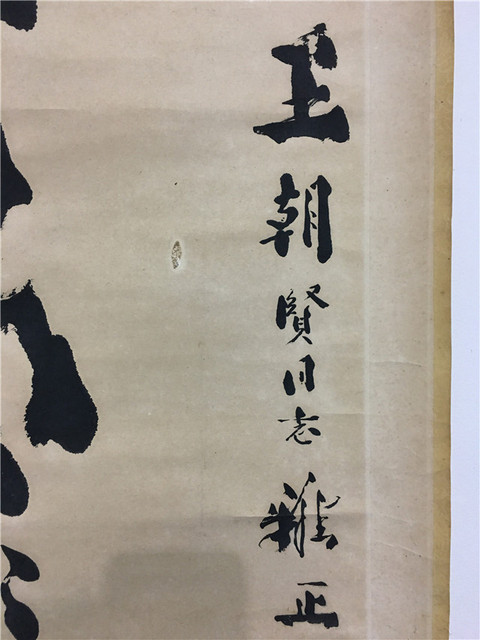 王朝賢同志雅正